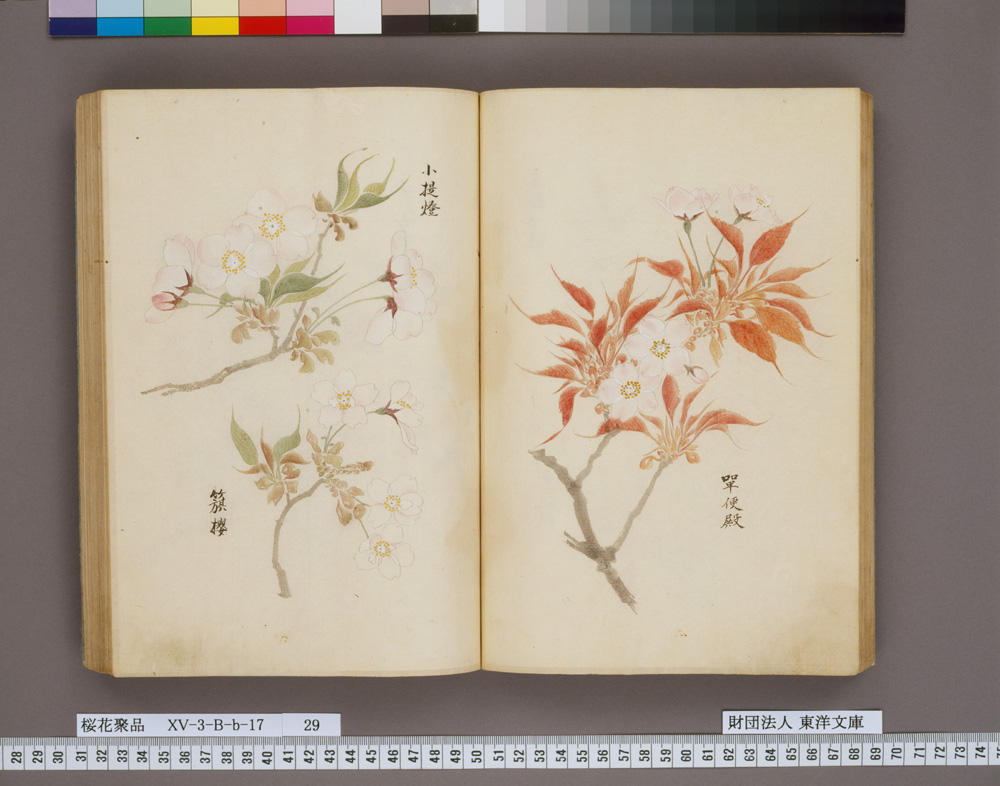 單便殿
小提燈
簱櫻
桜花聚品 XV-3-B-b-17 29
財団法人 東洋文庫
28 29 30 31 32 33 34 35 36 37 38 39 40 41 42 43 44 45 46 47 48 49 50 51 52 53 54 55 56 57 58 59 60 61 62 63 64 65 66 67 68 69 70 71 72 73 74